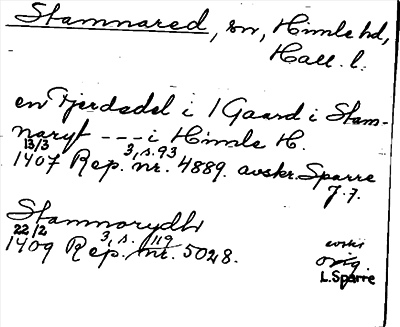 Stamnared, sn, Himle hd,
Hall. l.
en Fjerdedel i 1 Gaard i Stam-
naryt --- i Himle H.
13/3 3, s. 93
1407 Rep. nr. 4889. avskr. Sparre
Stamnorydh
22/2 3, s. 119
1409 Rep. nr. 5028. orig.
L. Sparre